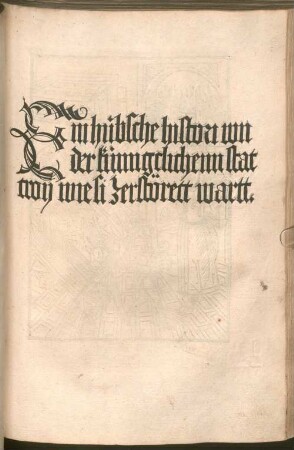 Ein hübsche histori von
der künigclichenn stat
troy wie si zerstörett wartt.